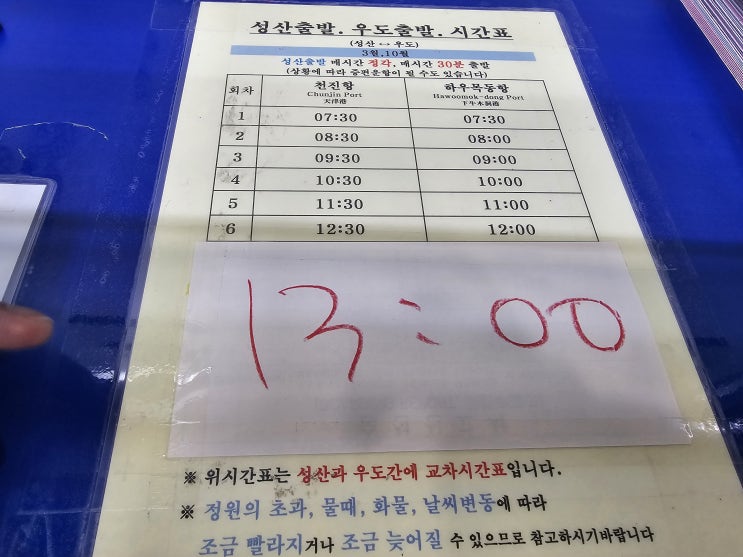 성산출발. 우도출발. 시간표
(성산 ↔ 우도)
3월,10월
성산출발 매시간 정각, 매시간 30분 출발
(상황에 따라 증편운항이 될 수도 있습니다)
회차 천진항 Chunjin Port 天津港 하우목동항 Hawoomok-dong Port 下牛木洞港
1 07:30 07:30
2 08:30 08:00
3 09:30 09:00
4 10:30 10:00
5 11:30 11:00
6 12:30 12:00
13:00
※ 위시간표는 성산과 우도간에 교차시간표입니다.
※ 정원의 초과, 물때, 화물, 날씨변동에 따라
조금 빨라지거나 조금 늦어질 수 있으므로 참고하시기바랍니다